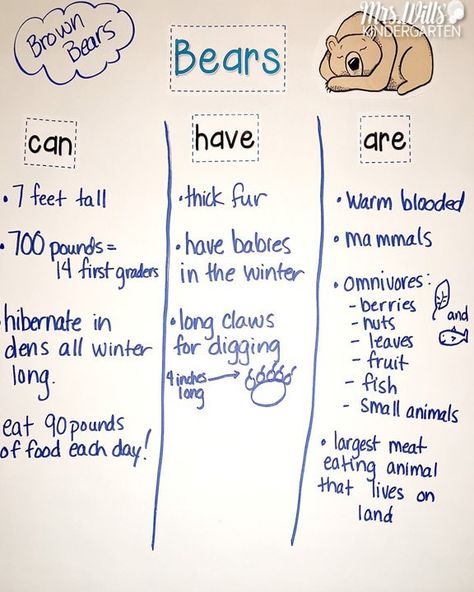 Mrs. Wills'
KINDERGARTEN
Brown
Bears
Bears
can
• 7 feet tall
• 700 pounds =
14 first graders
• hibernate in
dens all winter
long.
eat 90 pounds
of food each day!
have
• thick fur
• have babies
in the winter
• long claws
for digging
4 inches
long
are
• warm blooded
• mammals
• omnivores:
- berries
- nuts
- leaves
- fruit
- fish
- small animals
and
• largest meat
eating animal
that lives on
land